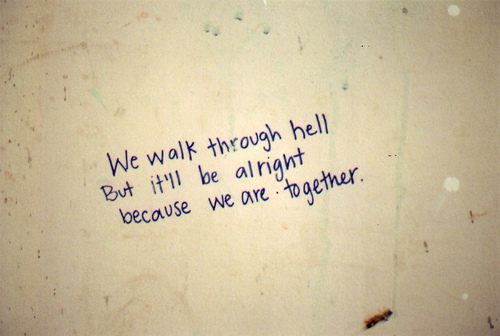 We walk through hell
But it'll be alright
because we are together.